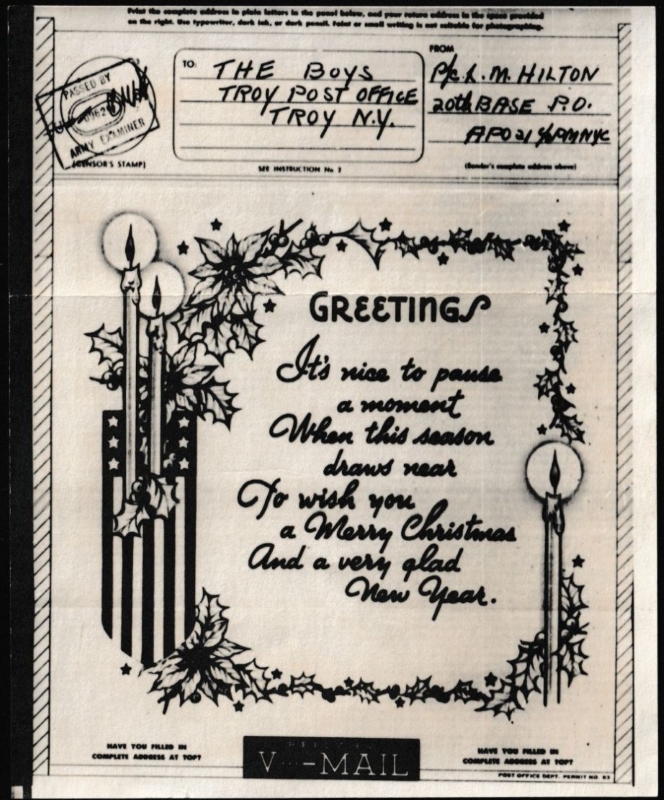 Print the complete address in plain letters in the panel below, and your return address in the space provided
on the right. Use typewriter, dark ink, or dark pencil. Faint or small writing is not suitable for photographing.
TO:
THE BOYS
TROY POST OFFICE
TROY N.Y.
FROM
Pfc L. M. HILTON
20th BASE P.O.
APO 21 % PM NYC
PASSED BY
ARMY EXAMINER
(CENSOR'S STAMP)
SEE INSTRUCTION No. 2
(Sender's complete address above)
GREETINGS
It's nice to pause
a moment
When this season
draws near
To wish you
a Merry Christmas
And a very glad
New Year.
HAVE YOU FILLED IN
COMPLETE ADDRESS AT TOP?
V - MAIL
HAVE YOU FILLED IN
COMPLETE ADDRESS AT TOP?
POST OFFICE DEPT. PERMIT NO. 83